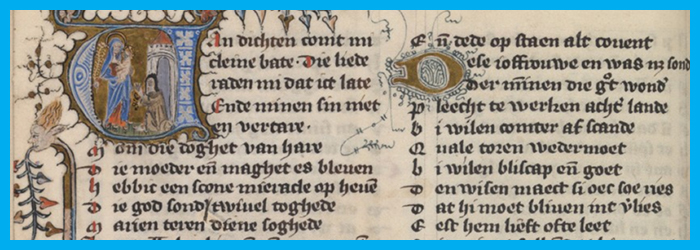 Van dichten comt mi
cleine bate · Die liede
raden mi dat ict late
Ende minen sin niet
en vertare ·
M om die doghet van hare
D ie moeder en̄ maghet es bleuen
H ebbic een scone mieracle op heuē
D ie god sond' twiuel toghede
M arien teren diene soghede
E n̄ dede op staen alt couent
Dese ioffrouwe en was nz sond
Der mīnen die gͦt wond'
P leecht te werken acht' lande
B i wilen comter af scande
Q uale toren wedermoet
B i wilen bliscap en̄ goet
D en wisen maect si oec soe ries
D at hi moet bliuen int v'lies
E est hem lieft ofte leet